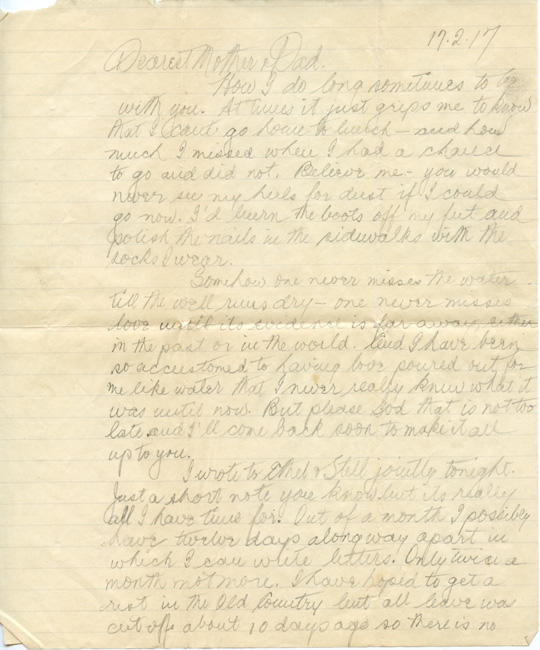 17.2.17
Dearest Mother & Dad.
How I do long sometimes to be
with you. At times it just grips me to know
that I cant go home to lunch – and how
much I missed when I had a chance
to go and did not. Believe me – you would
never see my heels for dust if I could
go now. I'd burn the boots off my feet and
polish the nails in the sidewalks with the
socks I wear.
Somehow one never misses the water
till the well runs dry – one never misses
love until its evidence is far away, either
in the past or in the world. And I have been
so accustomed to having love poured out for
me like water that I never really knew what it
was until now. But please God that is not too
late and I'll come back soon to make it all
up to you.
I wrote to Ethel & Still jointly tonight.
Just a short note you know but its really
all I have time for. Out of a month I possibly
have twelve days along way apart in
which I can write letters. Only twice a
month not more. I have hoped to get a
rest in the Old Country but all leave was
cut off about 10 days ago so there is no